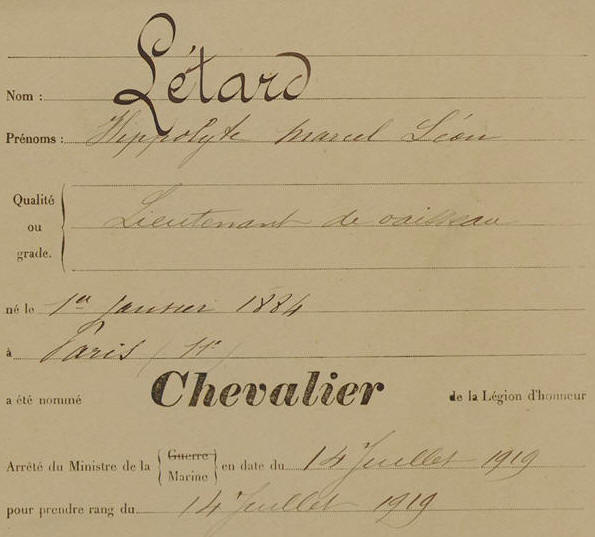 Nom : Létard
Prénoms : Hippolyte Marcel Léon
Qualité
ou
grade.
Lieutenant de vaisseau
né le 1er Janvier 1884
à Paris (11e)
a été nommé Chevalier de la Légion d'honneur
Arrêté du Ministre de la { Guerre
Marine } en date du 14 Juillet 1919
pour prendre rang du 14 Juillet 1919